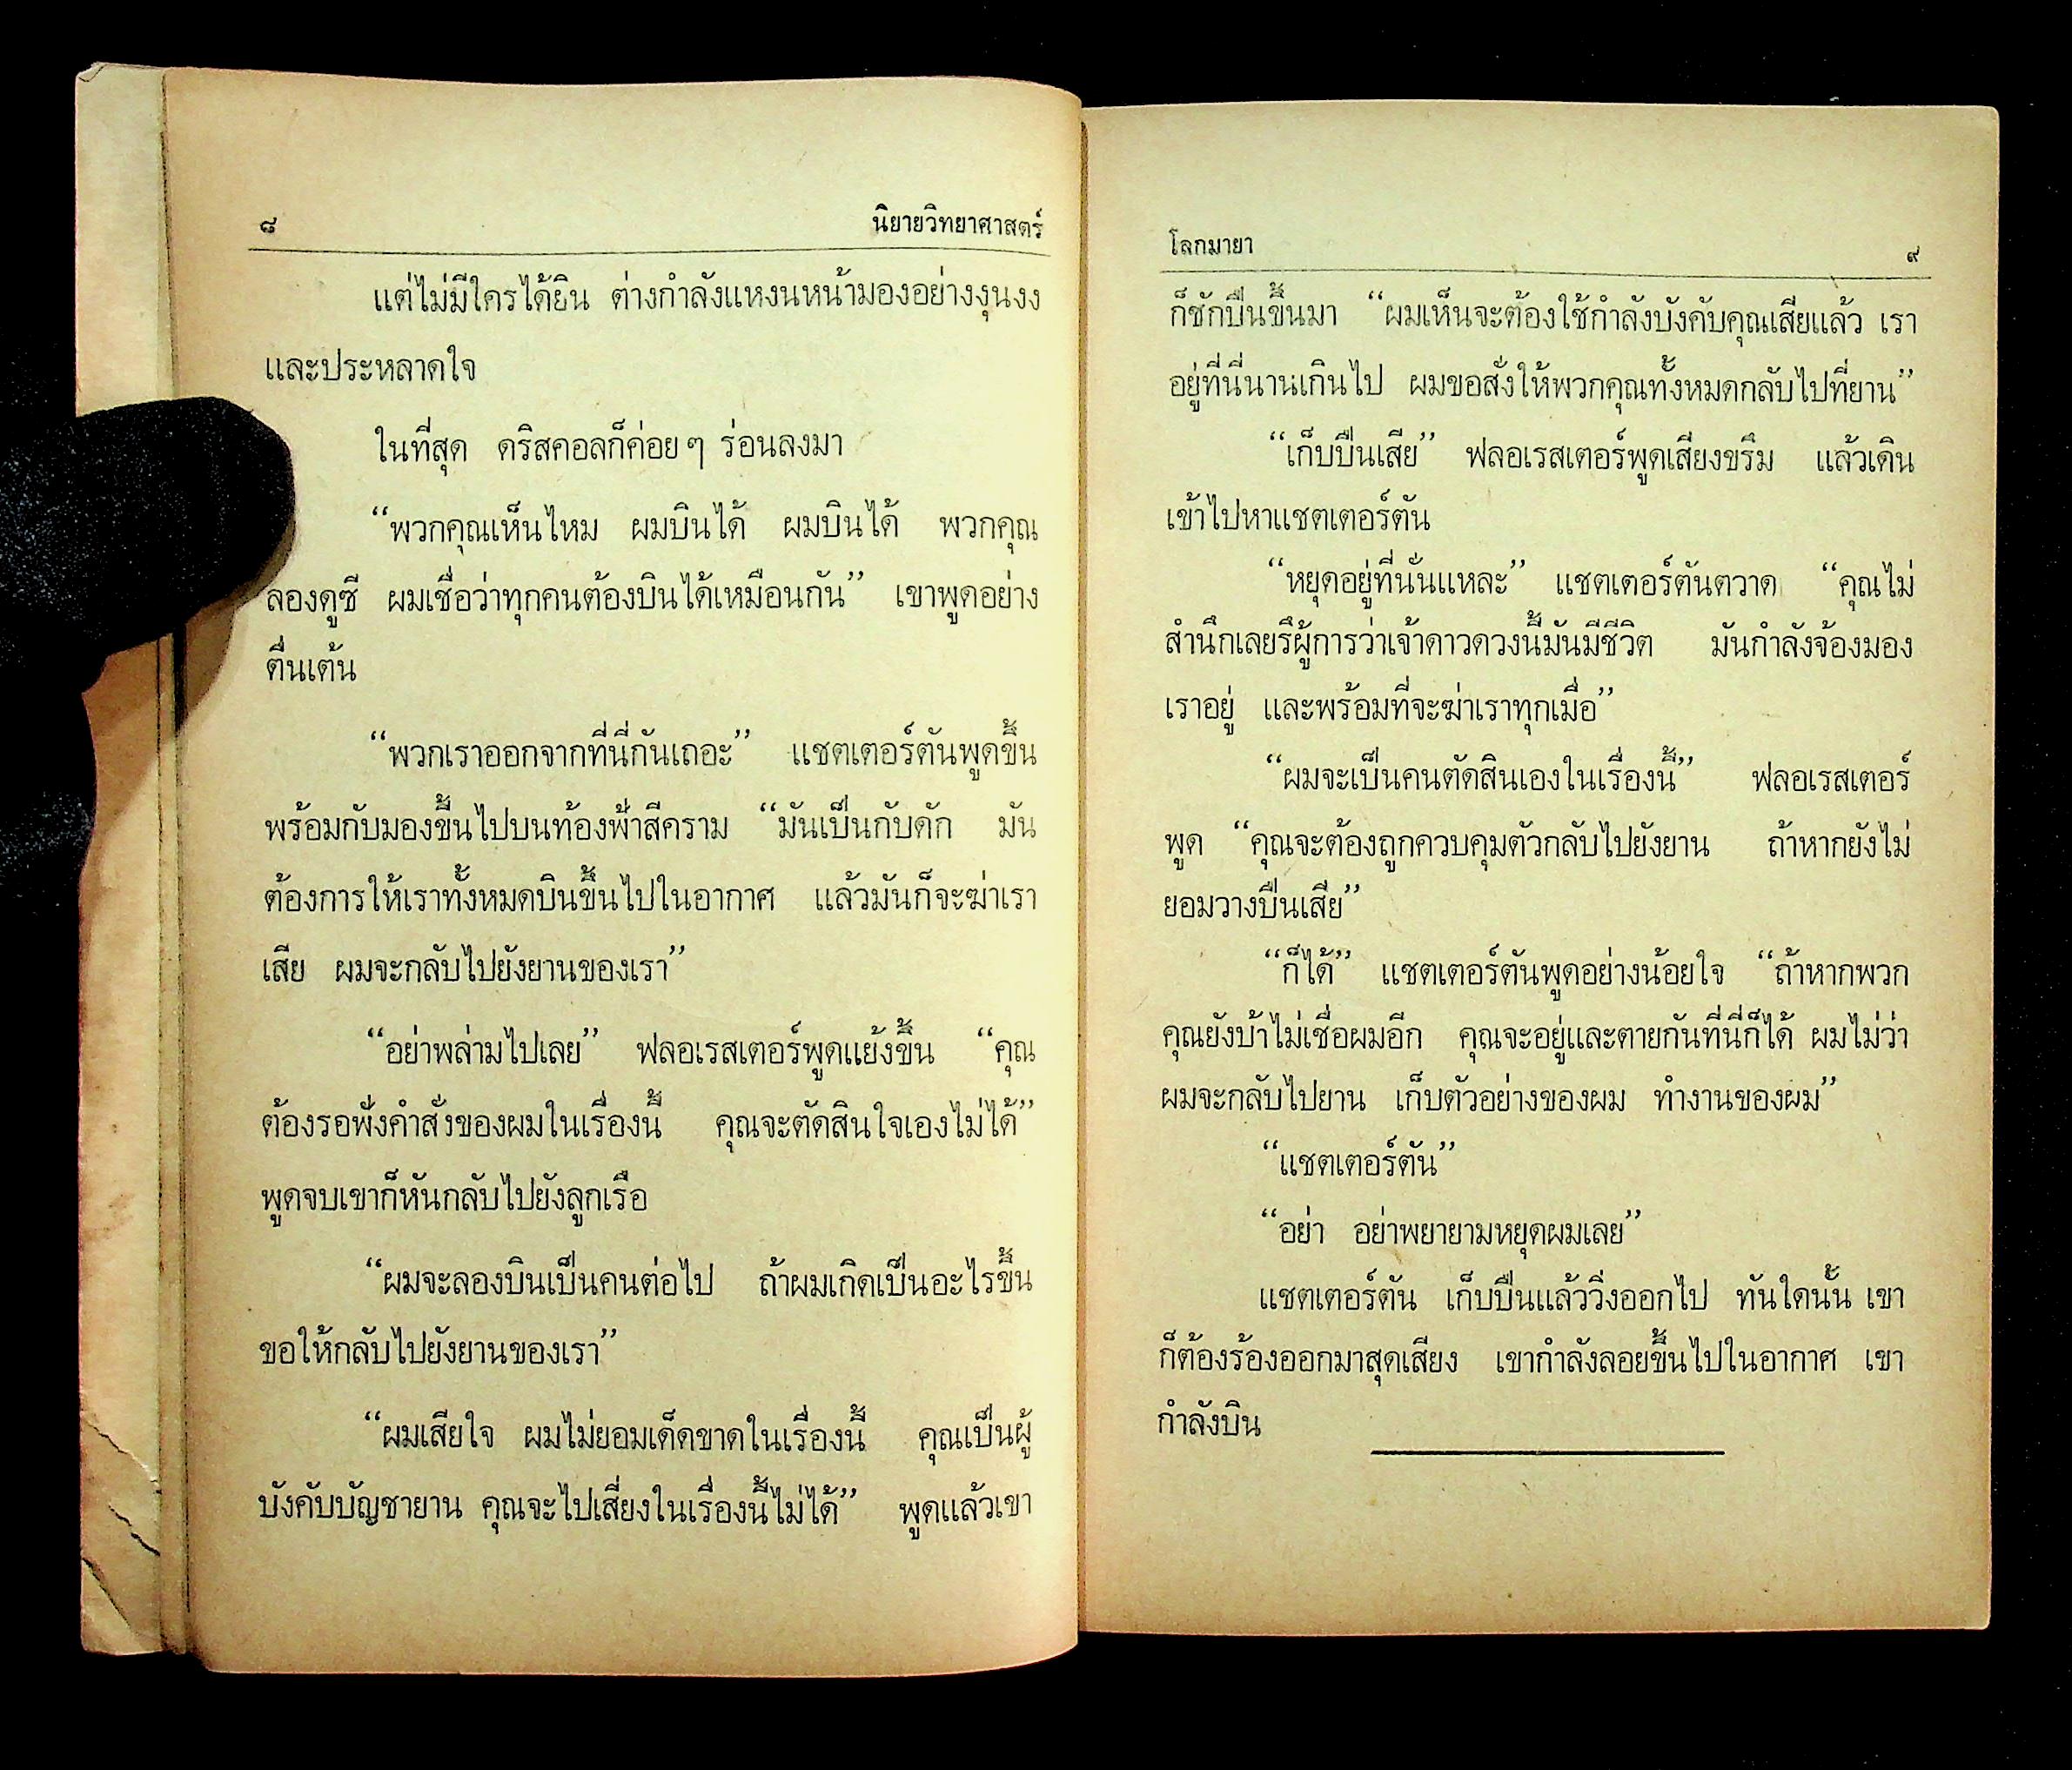 ๘ นิยายวิทยาศาสตร์
แต่ไม่มีใครได้ยิน ต่างกำลังแหงนหน้ามองอย่างงุนงง
และประหลาดใจ
ในที่สุด ดริสคอลก็ค่อย ๆ ร่อนลงมา
“พวกคุณเห็นไหม ผมบินได้ ผมบินได้ พวกคุณ
ลองดูซี ผมเชื่อว่าทุกคนต้องบินได้เหมือนกัน” เขาพูดอย่าง
ตื่นเต้น
“พวกเราออกจากที่นี่กันเถอะ” แชตเตอร์ตันพูดขึ้น
พร้อมกับมองขึ้นไปบนท้องฟ้าสีคราม “มันเป็นกับดัก มัน
ต้องการให้เราทั้งหมดบินขึ้นไปในอากาศ แล้วมันก็จะฆ่าเรา
เสีย ผมจะกลับไปยังยานของเรา”
“อย่าพล่ามไปเลย” ฟลอเรสเตอร์พูดแย้งขึ้น “คุณ
ต้องรอฟังคำสั่งของผมในเรื่องนี้ คุณจะตัดสินใจเองไม่ได้”
พูดจบเขาก็หันกลับไปยังลูกเรือ
“ผมจะลองบินเป็นคนต่อไป ถ้าผมเกิดเป็นอะไรขึ้น
ขอให้กลับไปยังยานของเรา”
“ผมเสียใจ ผมไม่ยอมเด็ดขาดในเรื่องนี้ คุณเป็นผู้
บังคับบัญชายาน คุณจะไปเสี่ยงในเรื่องนี้ไม่ได้” พูดแล้วเขา
โลกมายา ๙
ก็ชักปืนขึ้นมา “ผมเห็นจะต้องใช้กำลังบังคับคุณเสียแล้ว เรา
อยู่ที่นี่นานเกินไป ผมขอสั่งให้พวกคุณทั้งหมดกลับไปที่ยาน”
“เก็บปืนเสีย” ฟลอเรสเตอร์พูดเสียงขรึม แล้วเดิน
เข้าไปหาแชตเตอร์ตัน
“หยุดอยู่ที่นั่นแหละ” แชตเตอร์ตันตวาด “คุณไม่
สำนึกเลยรึผู้การว่าเจ้าดาวดวงนี้มันมีชีวิต มันกำลังจ้องมอง
เราอยู่ และพร้อมที่จะฆ่าเราทุกเมื่อ”
“ผมจะเป็นคนตัดสินเองในเรื่องนี้” ฟลอเรสเตอร์
พูด “คุณจะต้องถูกควบคุมตัวกลับไปยังยาน ถ้าหากยังไม่
ยอมวางปืนเสีย”
“ก็ได้” แชตเตอร์ตันพูดอย่างน้อยใจ “ถ้าหากพวก
คุณยังบ้าไม่เชื่อผมอีก คุณจะอยู่และตายกันที่นี่ก็ได้ ผมไม่ว่า
ผมจะกลับไปยาน เก็บตัวอย่างของผม ทำงานของผม”
“แชตเตอร์ตัน”
“อย่า อย่าพยายามหยุดผมเลย”
แชตเตอร์ตัน เก็บปืนแล้ววิ่งออกไป ทันใดนั้น เขา
ก็ต้องร้องออกมาสุดเสียง เขากำลังลอยขึ้นไปในอากาศ เขา
กำลังบิน